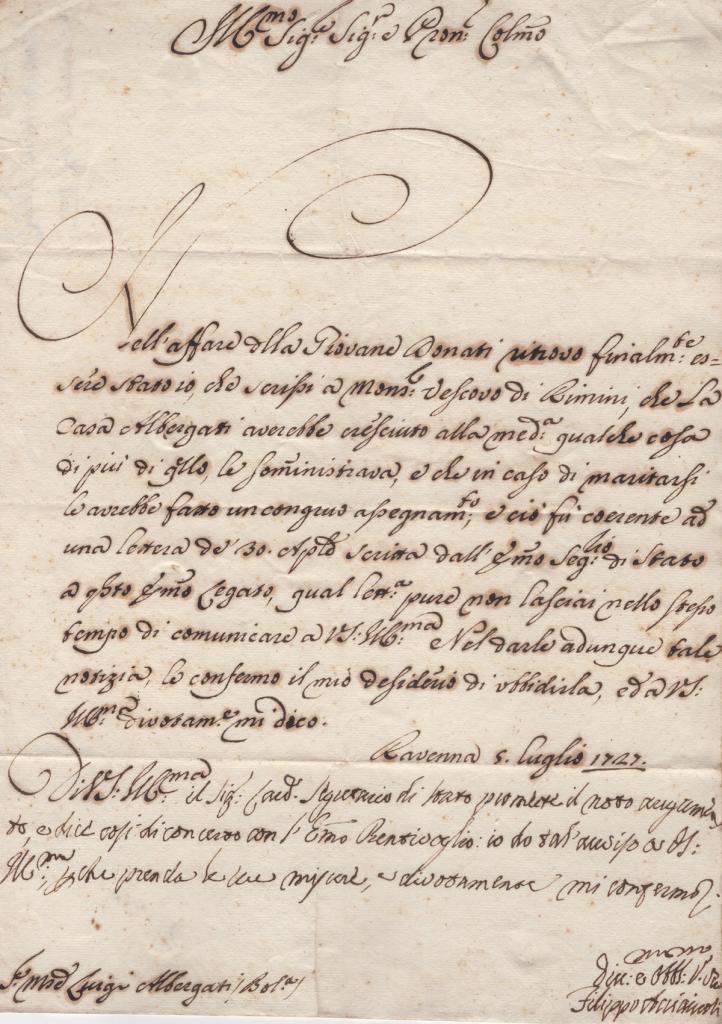 Ill:mo Sig.r Sig.r e Pron: Colmo
Nell'affare della Giovane Donati ritrovo finalm:te es=
sere stato io, che scrissi a Mons:r Vescovo di Rimini, che La
Casa Albergati averebbe cresciuto alla med:a qualche cosa
di più di q.llo, le somministrava, e che in caso di maritarsi
le avrebbe fatto un congruo assegnam:to; e ciò fù coerente ad
una lettera de' 30. Aple scritta dall' Emo Seg:rio di Stato
a qsto Emo Legato, qual lett:a pure non lasciai nello stesso
tempo di comunicare a VS: Ill:ma e Nel darle adunque tale
notizia, le confermo il mio desiderio di ubbidirla, ed a VS:
Ill:ma divotam:e mi dico.
Ravenna 5. Luglio 1727.
Di VS: Ill:ma il Sig: Card. Segretario di stato promette il noto augumen
to, e dice così di concerto con l'Emo Bentivoglio: io do tal avviso a VS:
Ill:ma, pche prenda le sue misure, e divotamente mi confermo
Sr. March. Luigi Albergati / Bol:a /
Div: e Obb: Sre
Filippo Acciaiuoli